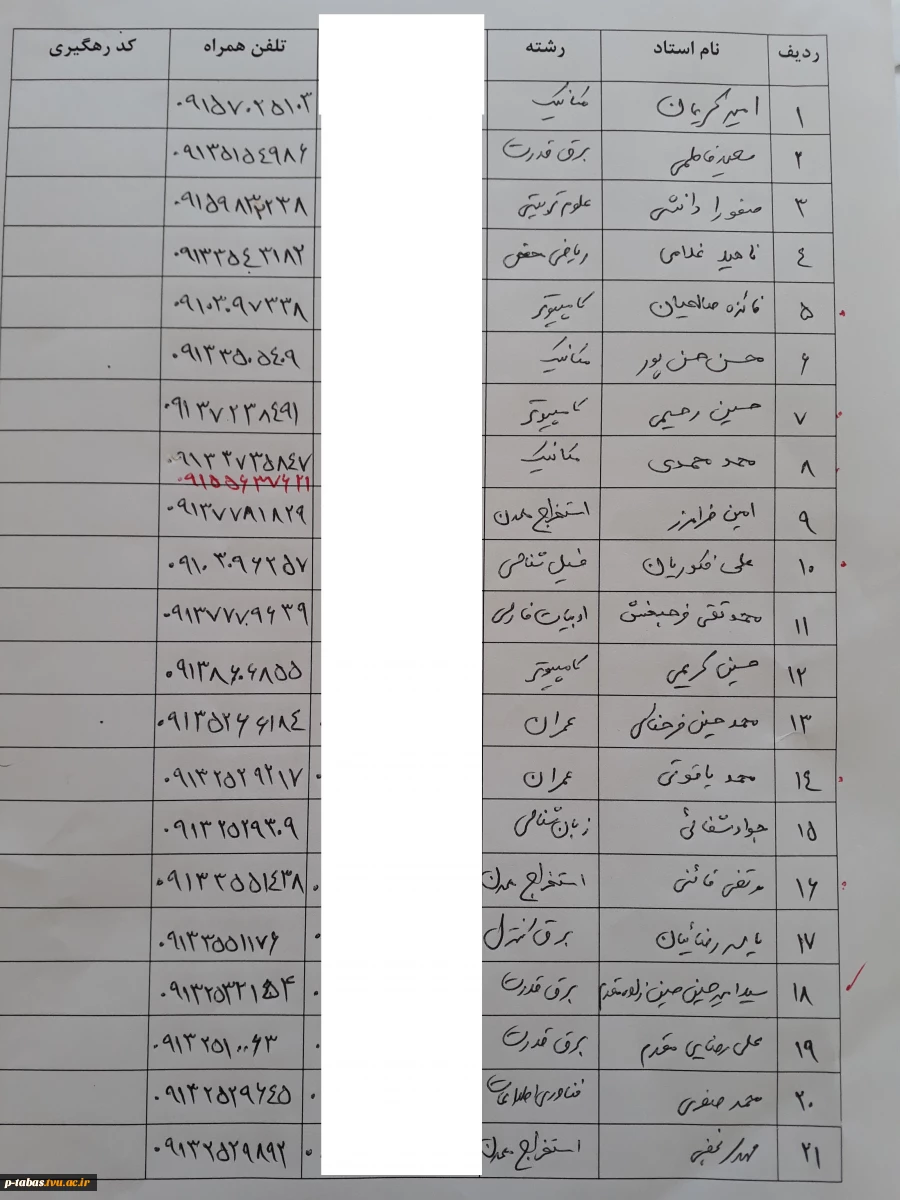 ردیف نام استاد رشته تلفن همراه کد رهگیری
۱ امیر کریمان مکانیک ۰۹۱۵۷۰۲۵۱۰۳
۲ سعید فاطمی برق قدرت ۰۹۱۳۵۱۵۴۹۸۶
۳ صفورا دانشی علوم تربیتی
۴ ناهید غلامی ریاضی محض ۰۹۱۳۳۵۴۳۱۸۲
۵ فائزه صالحیان کامپیوتر ۰۹۱۰۳۰۹۷۳۳۸
۶ محسن حسن پور مکانیک ۰۹۱۳۳۵۰۵۴۰۹
۷ حسین رحیمی کامپیوتر ۰۹۱۳۷۲۳۸۴۹۱
۸ محمد محمدی مکانیک ۰۹۱۳۲۷۳۵۸۴۷
۰۹۱۵۵۶۳۷۶۲۱
۹ امین فرامرز استخراج معدن ۰۹۱۳۷۷۸۱۸۲۹
۱۰ علی فکوریان فسیل شناسی ۰۹۱۰۳۰۹۶۲۵۷
۱۱ محمد تقی فرحبخش ادبیات فارسی ۰۹۱۳۷۷۷۹۶۳۹
۱۲ حسین کریمی کامپیوتر ۰۹۱۳۸۶۰۶۸۵۵
۱۳ محمد حسین عمران ۰۹۱۳۵۲۶۶۱۸۴
۱۴ محمد یاقوتی عمران ۰۹۱۳۲۵۲۹۲۱۷
۱۵ جواد شفائی زبان شناسی ۰۹۱۳۲۵۲۹۳۰۹
۱۶ مرتضی قائنی استخراج معدن ۰۹۱۳۳۵۵۱۴۳۸
۱۷ یاسر رضائیان برق کنترل ۰۹۱۳۳۵۵۱۱۷۶
۱۸ سید امیر حسین حسین زاده مقدم برق قدرت
۱۹ علی رضایی مقدم برق قدرت ۰۹۱۳۲۵۱۰۰۶۳
۲۰ محمد صفوی فناوری اطلاعات ۰۹۱۳۲۵۲۹۶۴۵
۲۱ مهدی نجفی استخراج معدن ۰۹۱۳۲۵۲۹۸۹۲
p-tabas.tvu.ac.ir